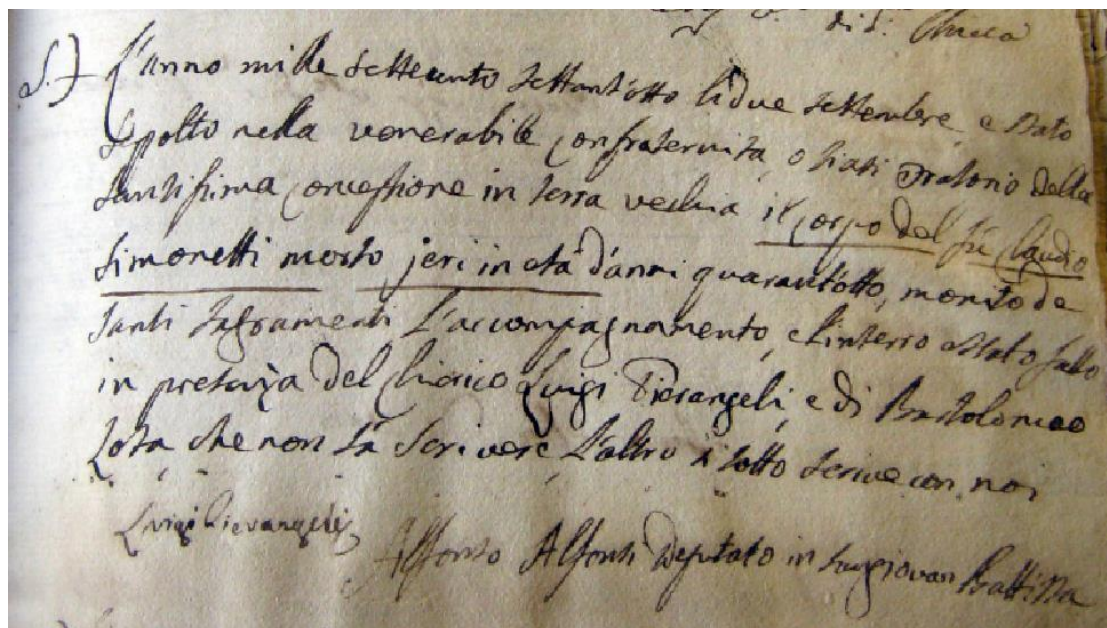 di d: Chiesa
S.) L'anno mille settecento settant'otto li due settembre e stato
sepolto nella venerabile confraternita, o siasi oratorio della
santissima concessione in terra vechia il corpo del fù Claudio
Simonetti morto jeri in età d'anni quarant'otto, monito de
santi sagramenti L'accompagnamento, e l'interro è stato fatto
in presenza del Chierico Luigi Pierangeli, e di Bartolomeo
che non sà scrivere L'altro si sotto scrive con noi
Luigi Pierangeli
Alfonso Alfonsi Deputato in San Giovan Battista